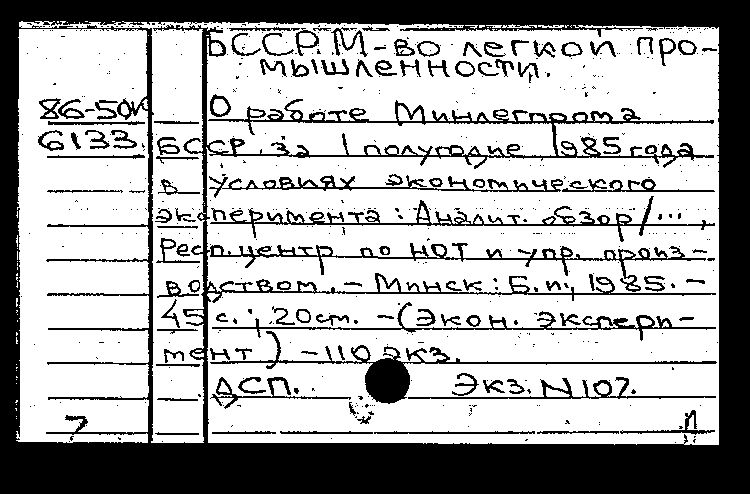 БССР. М-во легкой про-
мышленности.
86-50к
О работе Минлегпрома
6133. БССР за I полугодие 1985 года
в условиях экономического
эксперимента: Аналит. обзор /...,
Респ. центр по НОТ и упр. произ-
водством. - Минск: Б.и., 1985. -
45 с.; 20 см. - (Экон. экспери-
мент) - 110 экз.
ДСП. Экз. N 107.
7 п